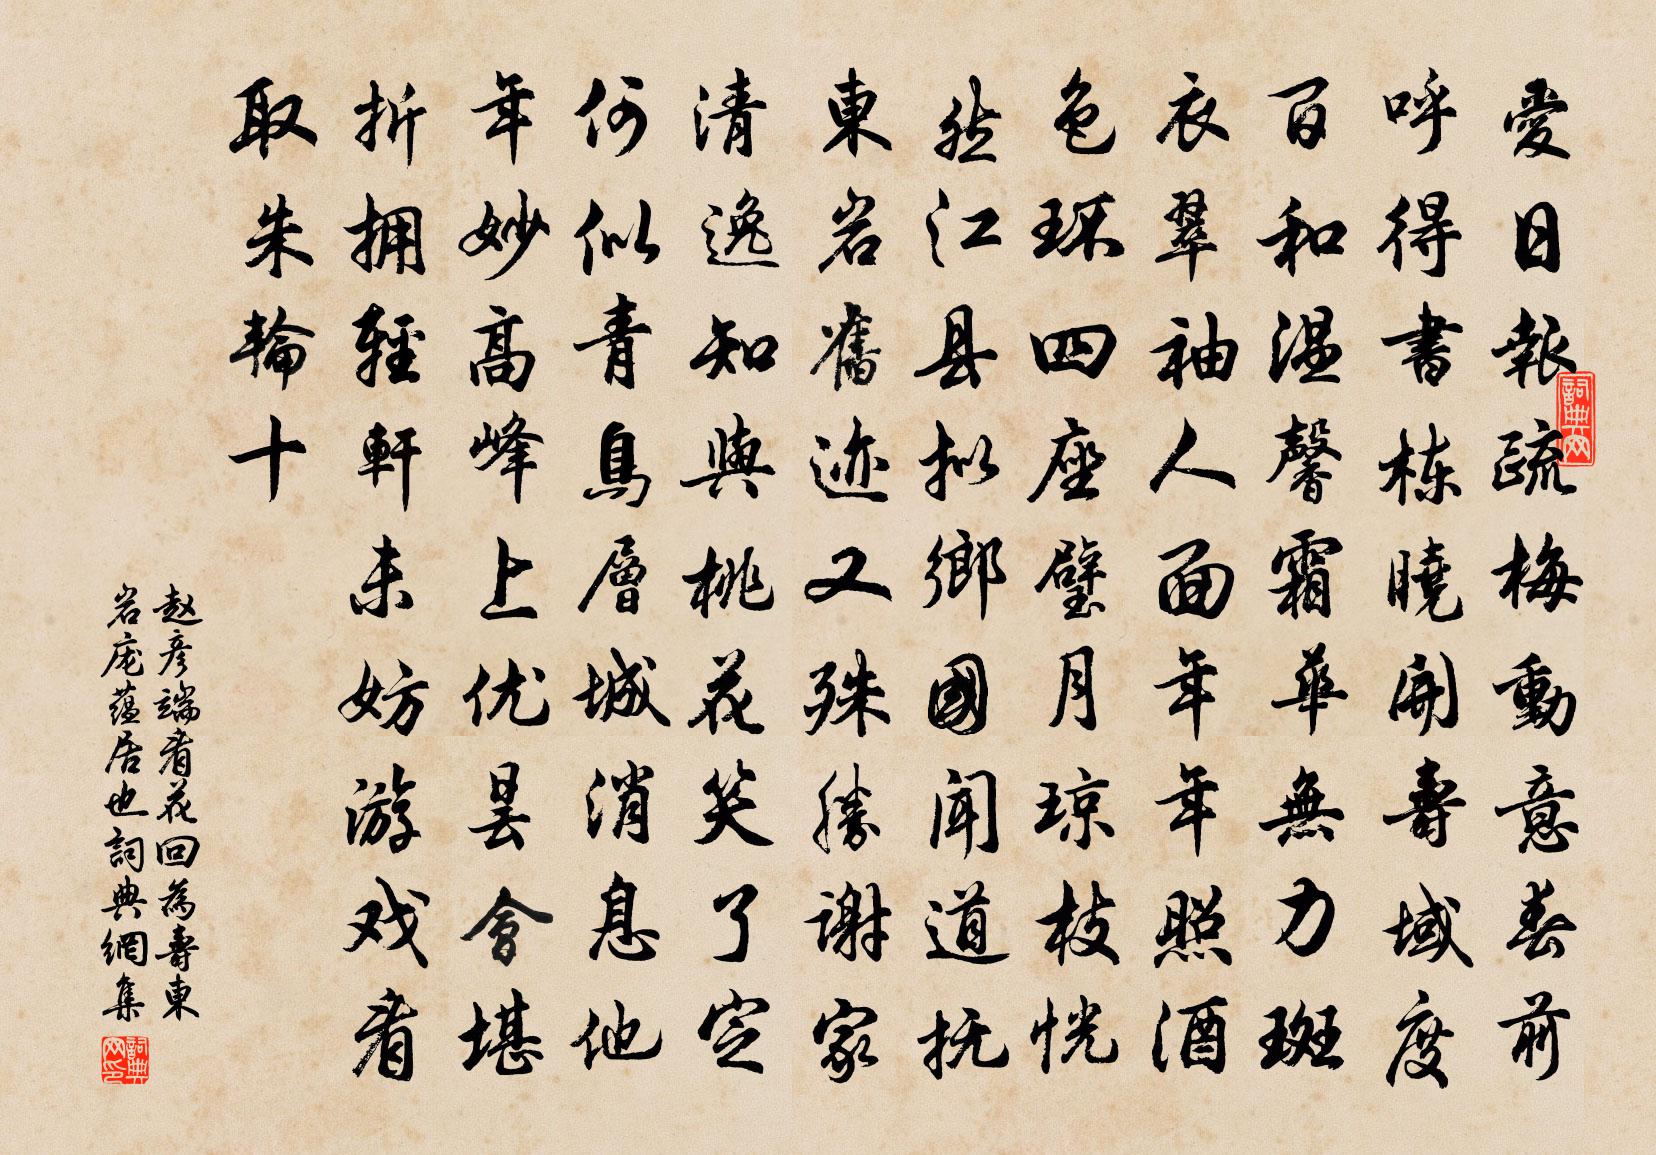 愛日報疏梅動意春前
呼得書棟曉開壽域度
百和温馨霜華無力斑
衣翠袖人面年年照酒
色环四座璧月琼枝恍
然江县拟鄉國聞道抚
東岩舊迹又殊勝謝家
清逸知與桃花笑了定
何似青鳥層城消息他
年妙高峰上优昙會堪
折拥輕軒未妨游戏看
取朱輪十
赵彦端看花回為壽東
岩庵蕴居也詞典網集
詞典网
詞典网印